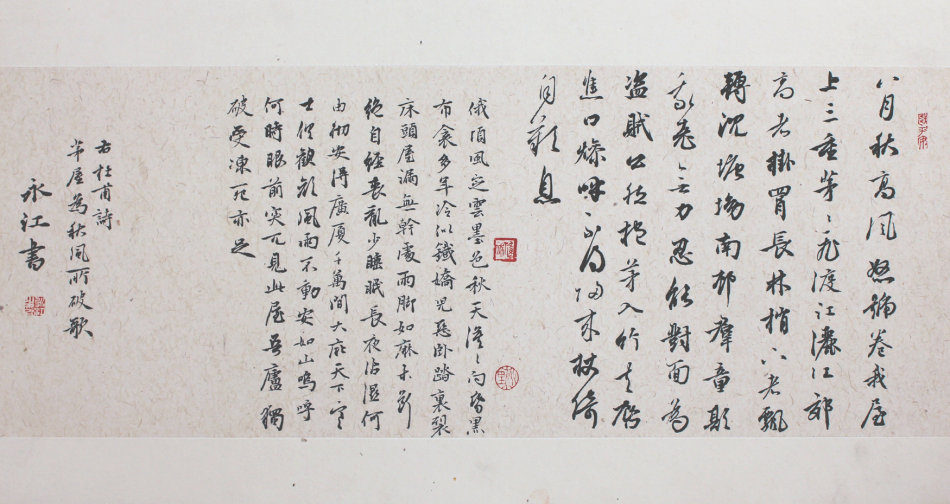 八月秋高风怒號卷我屋
上三重茅〻飛渡江灑江郊
高者掛罥長林梢下者飄
轉沈塘坳南邨羣童欺
我老無力忍能對面為
盜賊公然抱茅入竹去脣
焦口燥呼不得歸來杖倚
自歎息
俄頃風定雲墨色秋天漠〻向昏黑
布衾多年冷似鐵嬌兒惡卧踏裏裂
床頭屋漏無幹處雨脚如麻未斷
絕自經喪亂少睡眠長夜沾濕何
由徹安得廣厦千萬間大庇天下寒
士俱歡顏風雨不動安如山嗚呼
何時眼前突兀見此屋吾廬獨
破受凍死亦足
右杜甫詩
茅屋為秋風所破歌
永江書